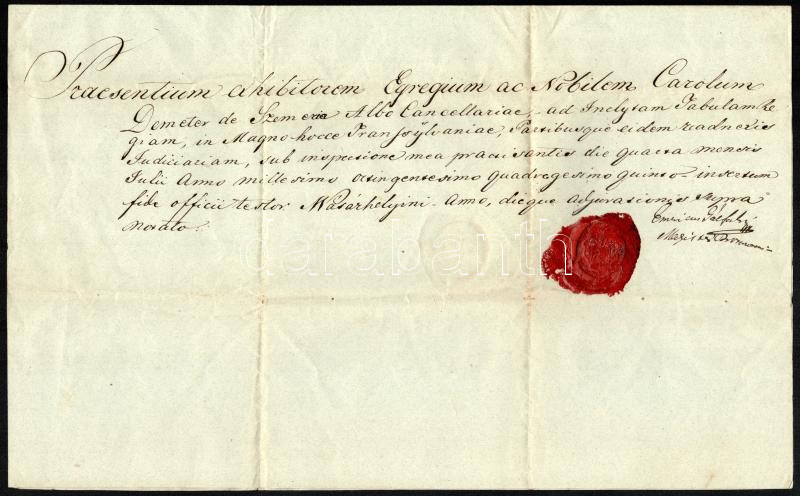 Praesentium exhibitorem Egregium ac Nobilem Carolum
Demeter de Szemeria Albo Cancellariae, ad Inclytam Tabulam Re
giam, in Magno hocce Transsylvaniae, Partibusque eidem readnexis
Judiciariam, sub inspectione mea praxisantis die quarta mensis
Julii Anno millesimo octingentesimo quadragesimo quinto insertum
fide officii testor Vásárhelyini Anno, dieque adjurationis supra
notato.
Magister
darabanth